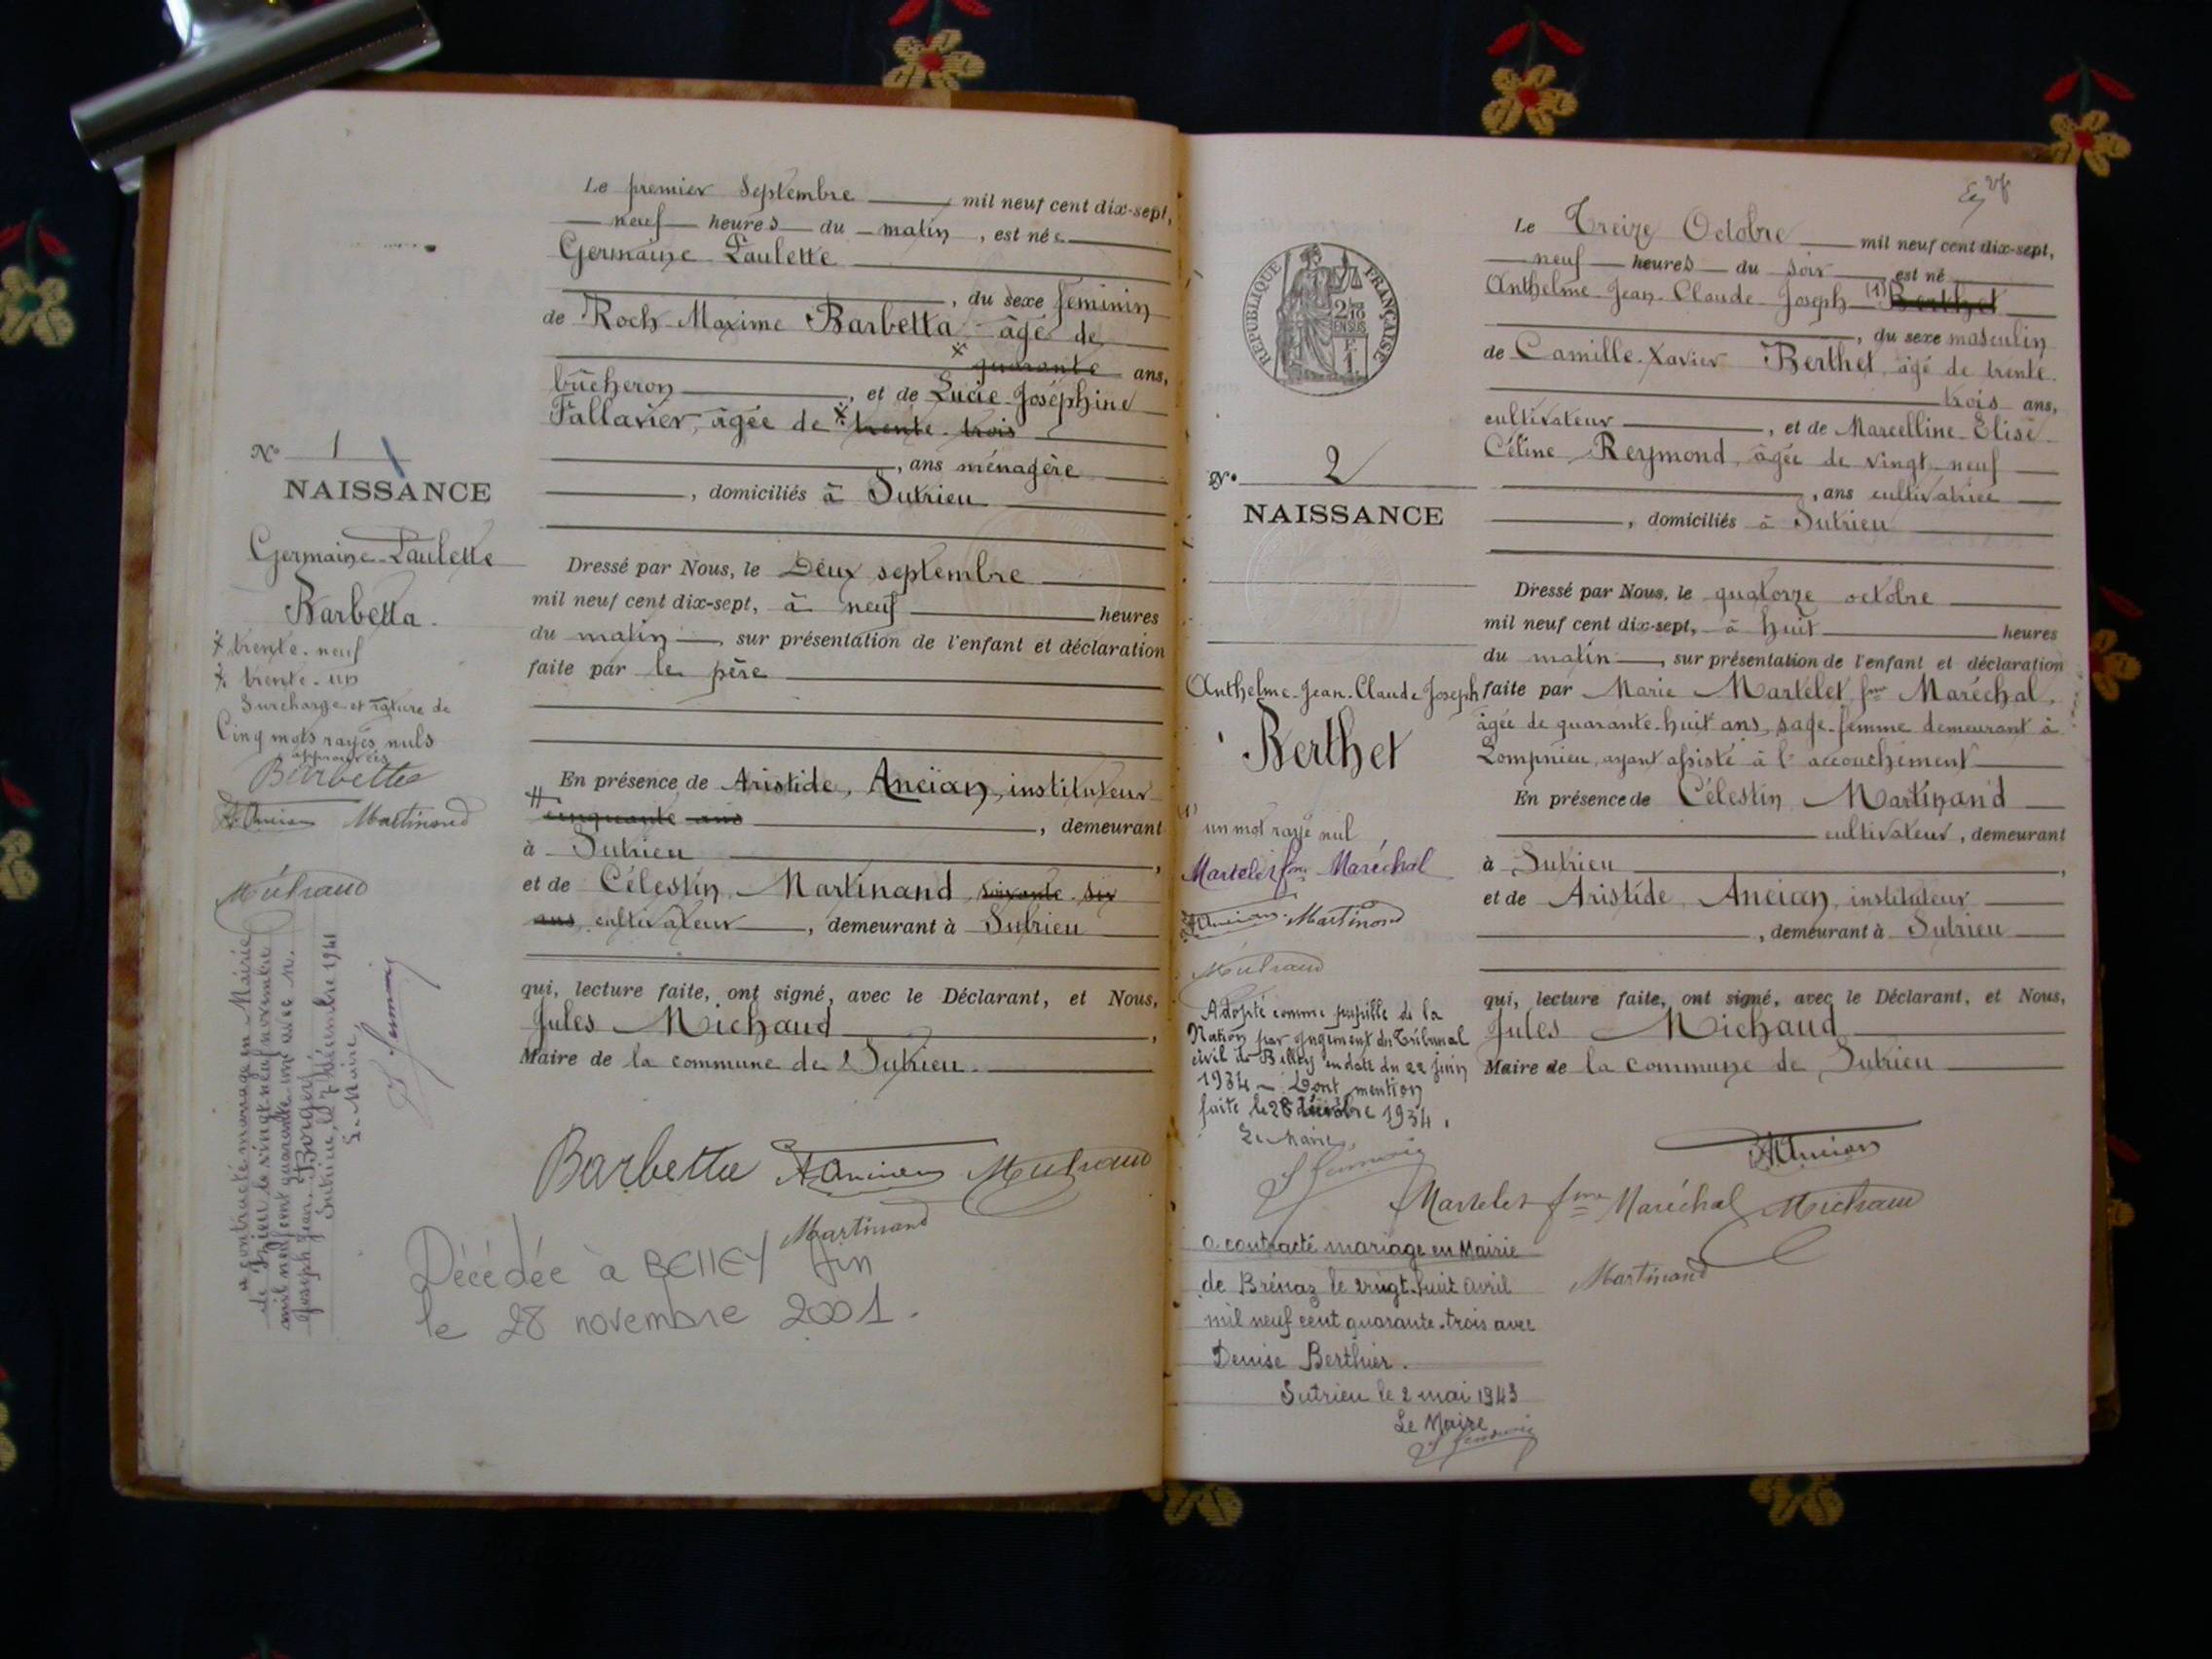 Le premier Septembre mil neuf cent dix-sept,
neuf heures du matin, est née
Germaine Paulette
, du sexe féminin
de Roch Maxime Barbetta âgé de
quarante ans,
bûcheron, et de Lucie Joséphine
Fallavier, âgée de trente-trois
, ans ménagère
, domiciliés à Sutrieu
N° 1
NAISSANCE
Germaine Paulette
Barbetta.
trente-neuf
trente-un
Surcharge et rature de
Cinq mots rayés nuls
approuvées
Barbetta
A. Ancian Martinand
Michaud
Dressé par Nous, le Deux septembre
mil neuf cent dix-sept, à neuf heures
du matin, sur présentation de l'enfant et déclaration
faite par le père
En présence de Aristide, Ancian, instituteur
cinquante ans, demeurant
à Sutrieu,
et de Célestin Martinand soixante-six
ans cultivateur, demeurant à Sutrieu
qui, lecture faite, ont signé, avec le Déclarant, et Nous,
Jules Michaud,
Maire de la commune de Sutrieu.
a contracté mariage en Mairie
de le vingt neuf novembre
mil neuf cent quarante un avec M.
Joseph Jean Borgey
Sutrieu, le 7 décembre 1941
Le Maire
Barbetta A Ancian Michaud
Martinand
Décédée à BELLEY Ain
le 28 novembre 2001.
Le Treize Octobre mil neuf cent dix-sept,
neuf heures du soir est né
Anthelme Jean-Claude Joseph (1) Berthet
, du sexe masculin
de Camille-Xavier Berthet, âgé de trente
trois ans,
cultivateur, et de Marcelline Elise
Céline Reymond, âgée de vingt-neuf
, ans cultivatrice
, domiciliés à Sutrieu
REPUBLIQUE FRANÇAISE
N° 2
NAISSANCE
Anthelme-Jean-Claude Joseph
Berthet
(1) un mot rayé nul
Martelet fme Maréchal
A Ancian Martinand
Michaud
Dressé par Nous, le quatorze octobre
mil neuf cent dix-sept, à huit heures
du matin, sur présentation de l'enfant et déclaration
faite par Marie Martelet fme Maréchal,
âgée de quarante-huit ans, sage-femme demeurant à
Lompnieu, ayant assisté à l'accouchement
En présence de Célestin Martinand
cultivateur, demeurant
à Sutrieu,
et de Aristide Ancian, instituteur
, demeurant à Sutrieu
qui, lecture faite, ont signé, avec le Déclarant, et Nous,
Jules Michaud
Maire de la commune de Sutrieu
Adopté comme pupille de la
Nation par jugement du Tribunal
civil de Belley en date du 22 juin
1934 - Dont mention
faite le 28 1934.
Le Maire,
A Ancian
Martelet fme Maréchal Michaud
Martinand
a contracté mariage en Mairie
de Brénaz le vingt-huit avril
mil neuf cent quarante-trois avec
Denise Berthier.
Sutrieu le 2 mai 1943
Le Maire